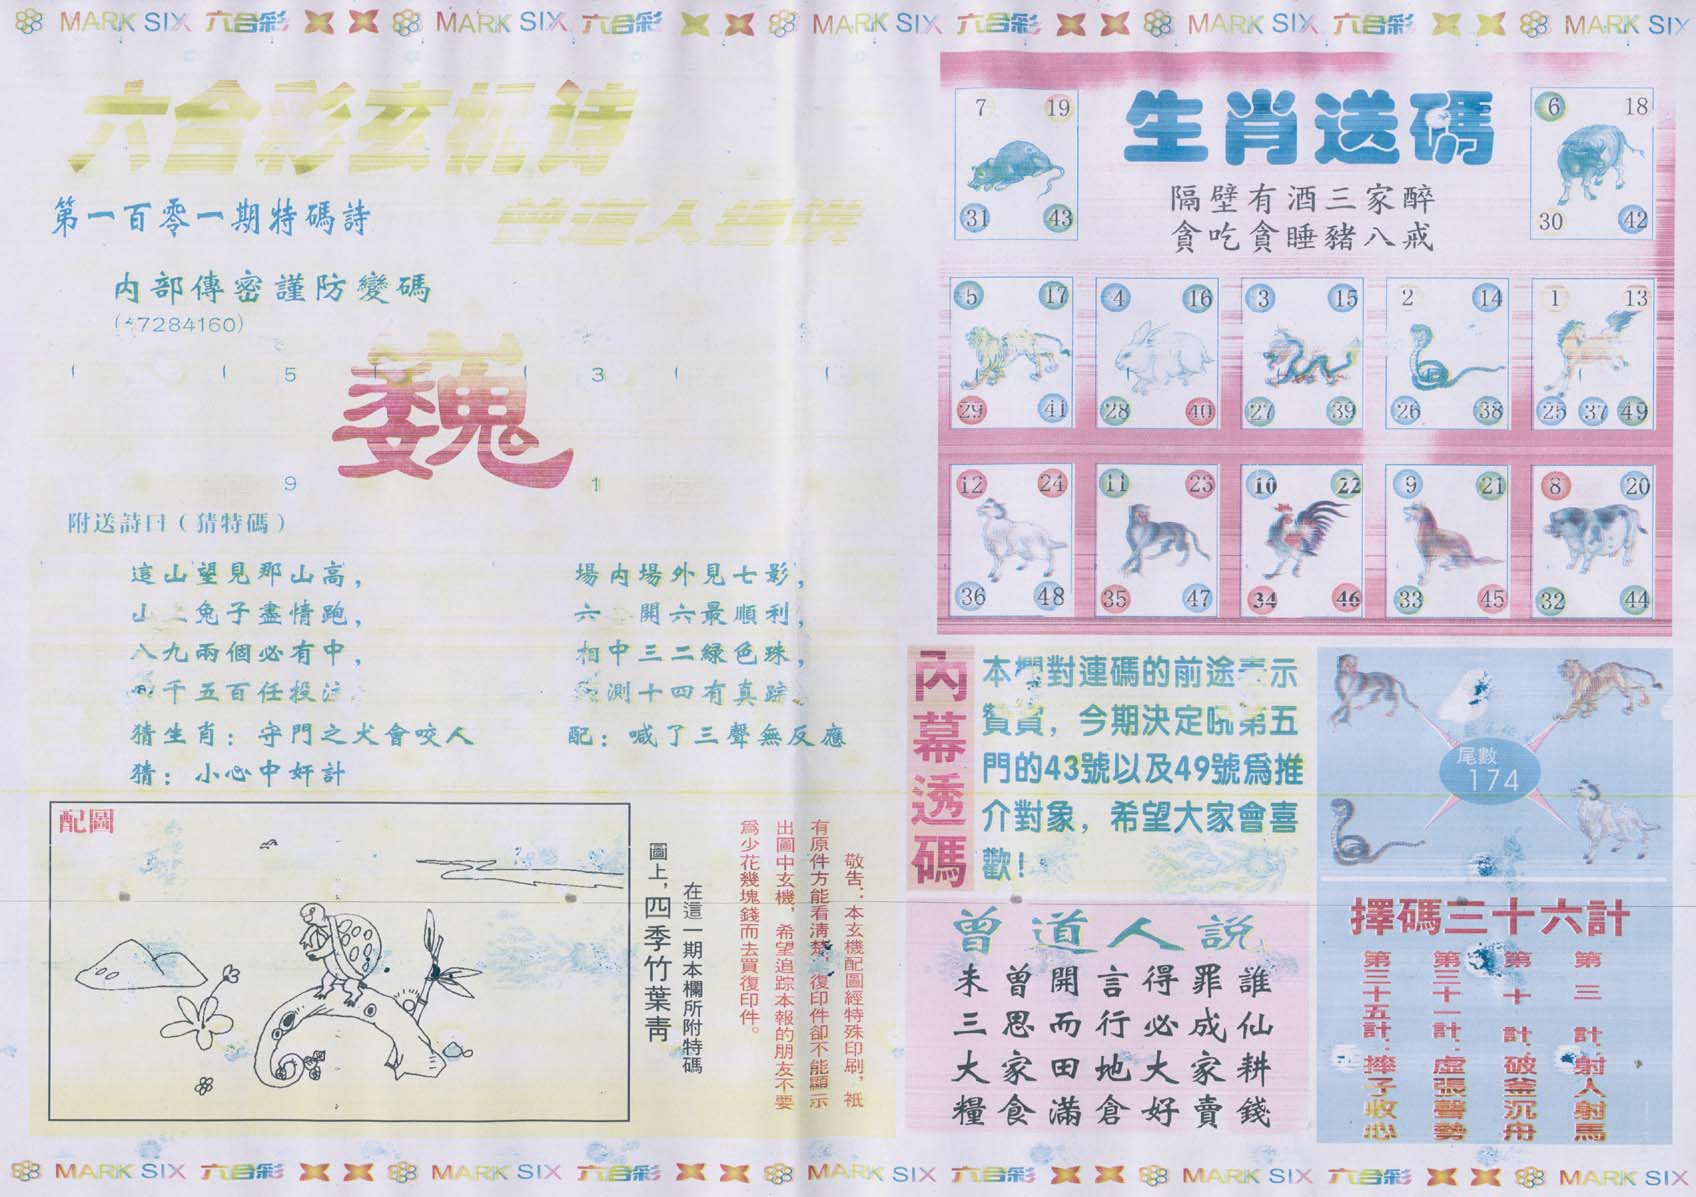 MARK SIX 六合彩 MARK SIX 六合彩 MARK SIX 六合彩 MARK SIX 六合彩 MARK SIX
六合彩玄机诗
第一百零一期特碼詩
曾道人提供
内部傳密謹防變碼
7284160)
5
3
巍
9
1
附送詩口（猜特碼）
這山望見那山高，
山上兔子盡情跑，
八九兩個必有中，
千五百任投注
場内場外見七影，
六 開六最順利，
相中三二綠色珠，
測十四有真踪
猜生肖：守門之犬會咬人
配：喊了三聲無反應
猜：小心中奸計
配圖
圖上，四季竹葉青
在這一期本欄所附特碼
敬告：本玄機配圖經特殊印刷，衹
有原件方能看清楚，復印件卻不能顯示
出圖中玄機，希望追踪本報的朋友不要
爲少花幾塊錢而去買復印件。
生肖送碼
隔壁有酒三家醉
貪吃貪睡豬八戒
7 19
31 43
6 18
30 42
5 17
29 41
4 16
28 40
3 15
27 39
2 14
26 38
1 13
25 37 49
12 24
36 48
11 23
35 47
10 22
34 46
9 21
33 45
8 20
32 44
內幕透碼
本欄對連碼的前途表示
贊賞，今期決定吼第五
門的43號以及49號爲推
介對象，希望大家會喜
歡！
尾數
174
曾道人説
未曾開言得罪誰
三思而行必成仙
大家田地大家耕
糧食滿倉好賣錢
擇碼三十六計
第三計：射人射馬
第十計：破釜沉舟
第三十一計：虛張聲勢
第三十五計：摔子收心
MARK SIX 六合彩 MARK SIX 六合彩 MARK SIX 六合彩 MARK SIX 六合彩 MARK SIX